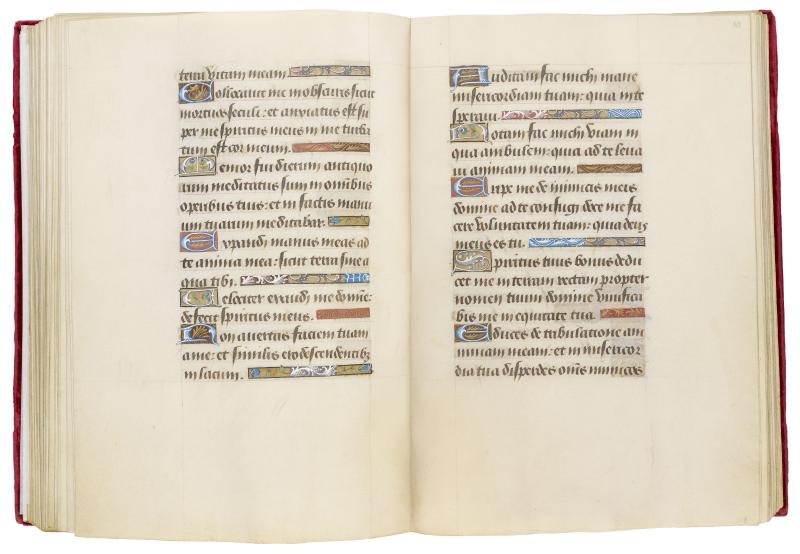 terra vitam meam.
Collocavit me in obscuris sicut
mortuos seculi: et anxiatus est su
per me spiritus meus in me turba
tum est cor meum.
Memor fui dierum antiquo
rum meditatus sum in omnibus
operibus tuis: et in factis manu
um tuarum meditabar.
Expandi manus meas ad
te anima mea: sicut terra sine a
qua tibi.
Velociter exaudi me domine:
defecit spiritus meus.
Non avertas faciem tuam
a me: et similis ero descendentibus
in lacum.
Auditam fac michi mane
misericordiam tuam: quia in te
speravi.
Notam fac michi viam in
qua ambulem: quia ad te leva
vi animam meam.
Eripe me de inimicis meis
domine ad te confugi doce me fa
cere voluntatem tuam: quia deus
meus es tu.
Spiritus tuus bonus dedu
cet me in terram rectam propter
nomen tuum domine vivifica
bis me in equitate tua.
Educes de tribulatione an
imam meam: et in misericor
dia tua disperdes omnes inimicos